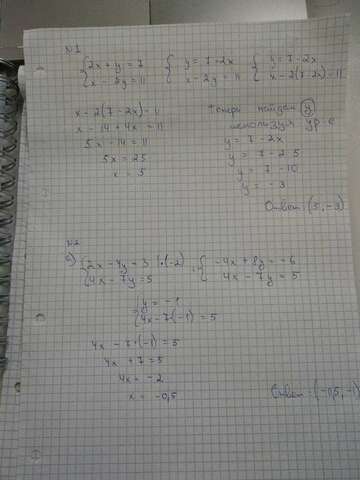 N1
{2x + y = 7 {y = 7 - 2x {y = 7 - 2x
{x - 2y = 11 {x - 2y = 11 {x - 2(7 - 2x) = 11
x - 2(7 - 2x) = 11
x - 14 + 4x = 11
5x - 14 = 11
5x = 25
x = 5
Теперь найдем y
используя ур-е
y = 7 - 2x
y = 7 - 2·5
y = 7 - 10
y = -3
Ответ: (5; -3)
N2
{2x - 4y = 3 |·(-2) {-4x + 8y = -6
{4x - 7y = 5 {4x - 7y = 5
{y = -1
{4x - 7·(-1) = 5
4x - 7·(-1) = 5
4x + 7 = 5
4x = -2
x = -0,5
Ответ: (-0,5; -1)